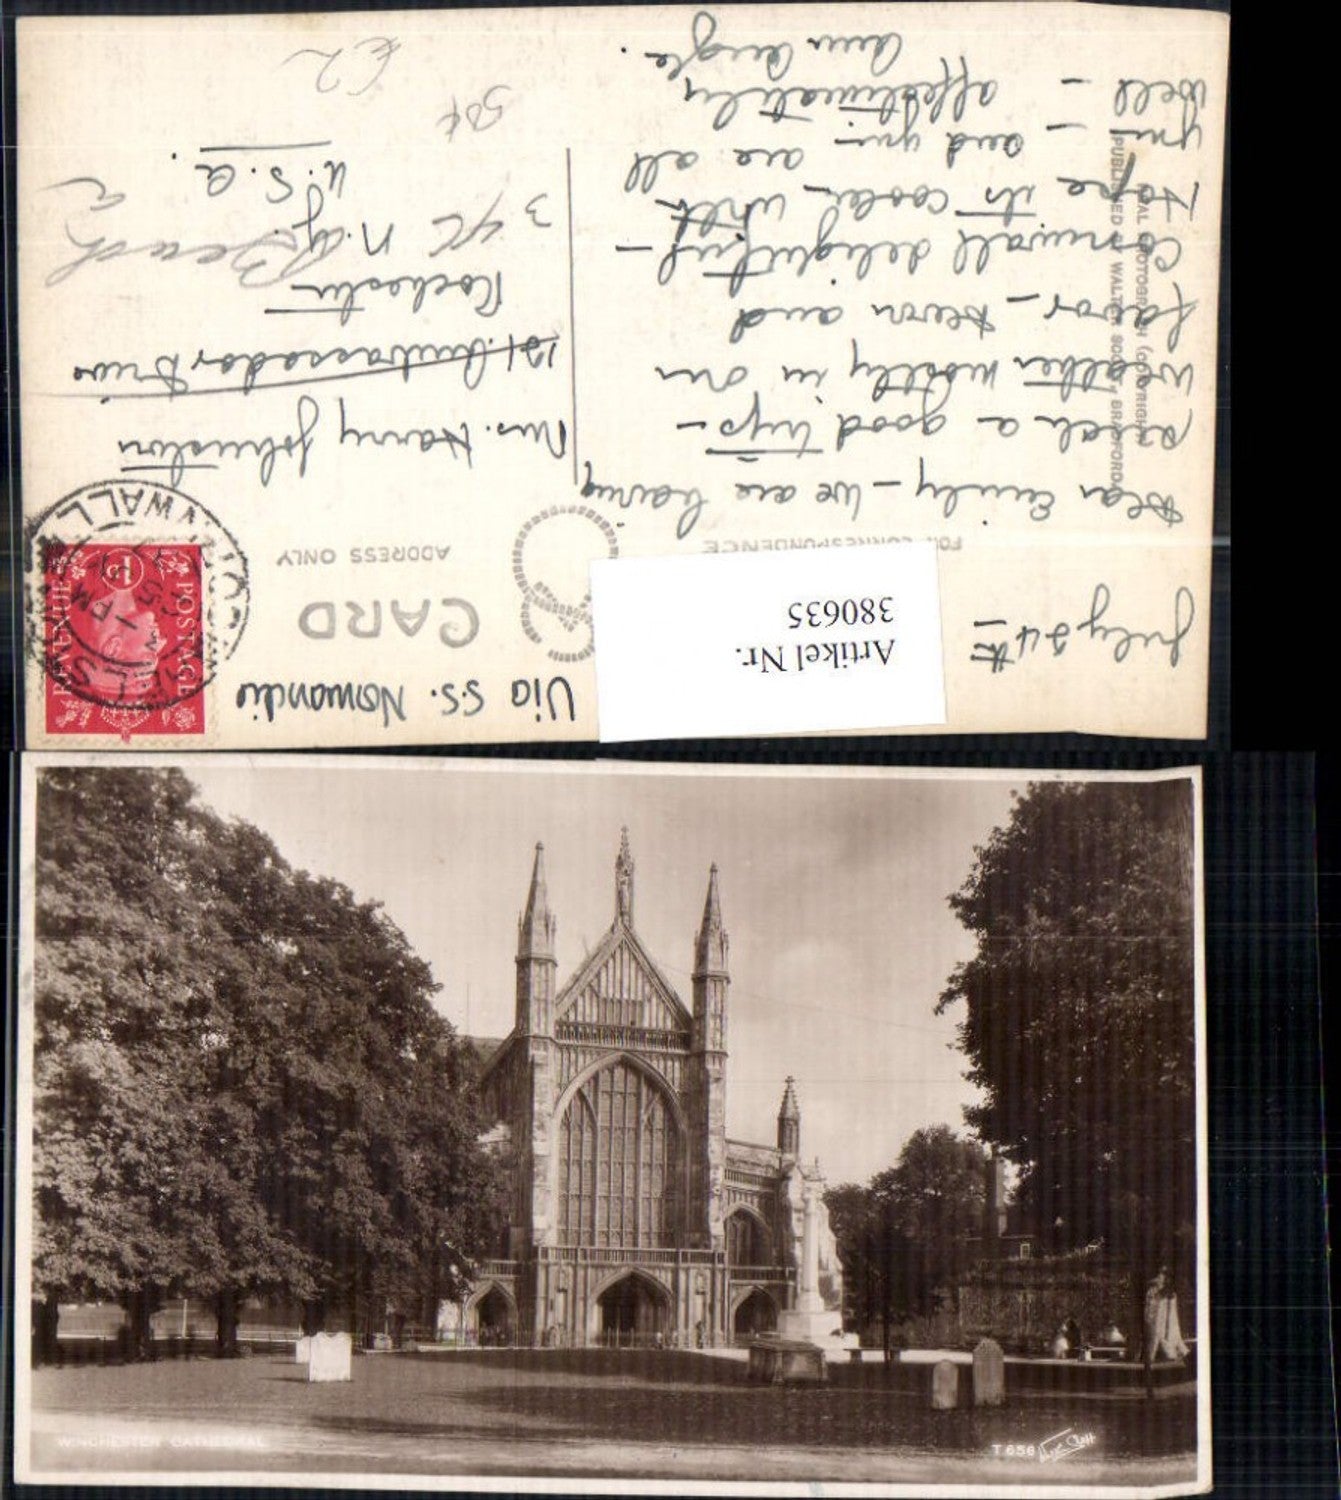 July 24th
Artikel Nr.
380635
Via S.S. Normandie
CARD
FOR CORRESPONDENCE
ADDRESS ONLY
POSTAGE
REVENUE
1D
1 PM
CORNWALL
Dear Emily – We are having
such a good trip –
weather mostly in our
favor – Devon and
Cornwall delightful –
Hope its cooler with
you – and you are all
well – affectionately
Ann Angle.
Mrs. Harry Johnston
121. Ambassador Drive
Rochester
N.Y.
U.S.A.
Beach
50¢
REAL PHOTOGRAPH (COPYRIGHT)
PUBLISHED WALTER SCOTT, BRADFORD.
WINCHESTER CATHEDRAL
T 656 Walter Scott